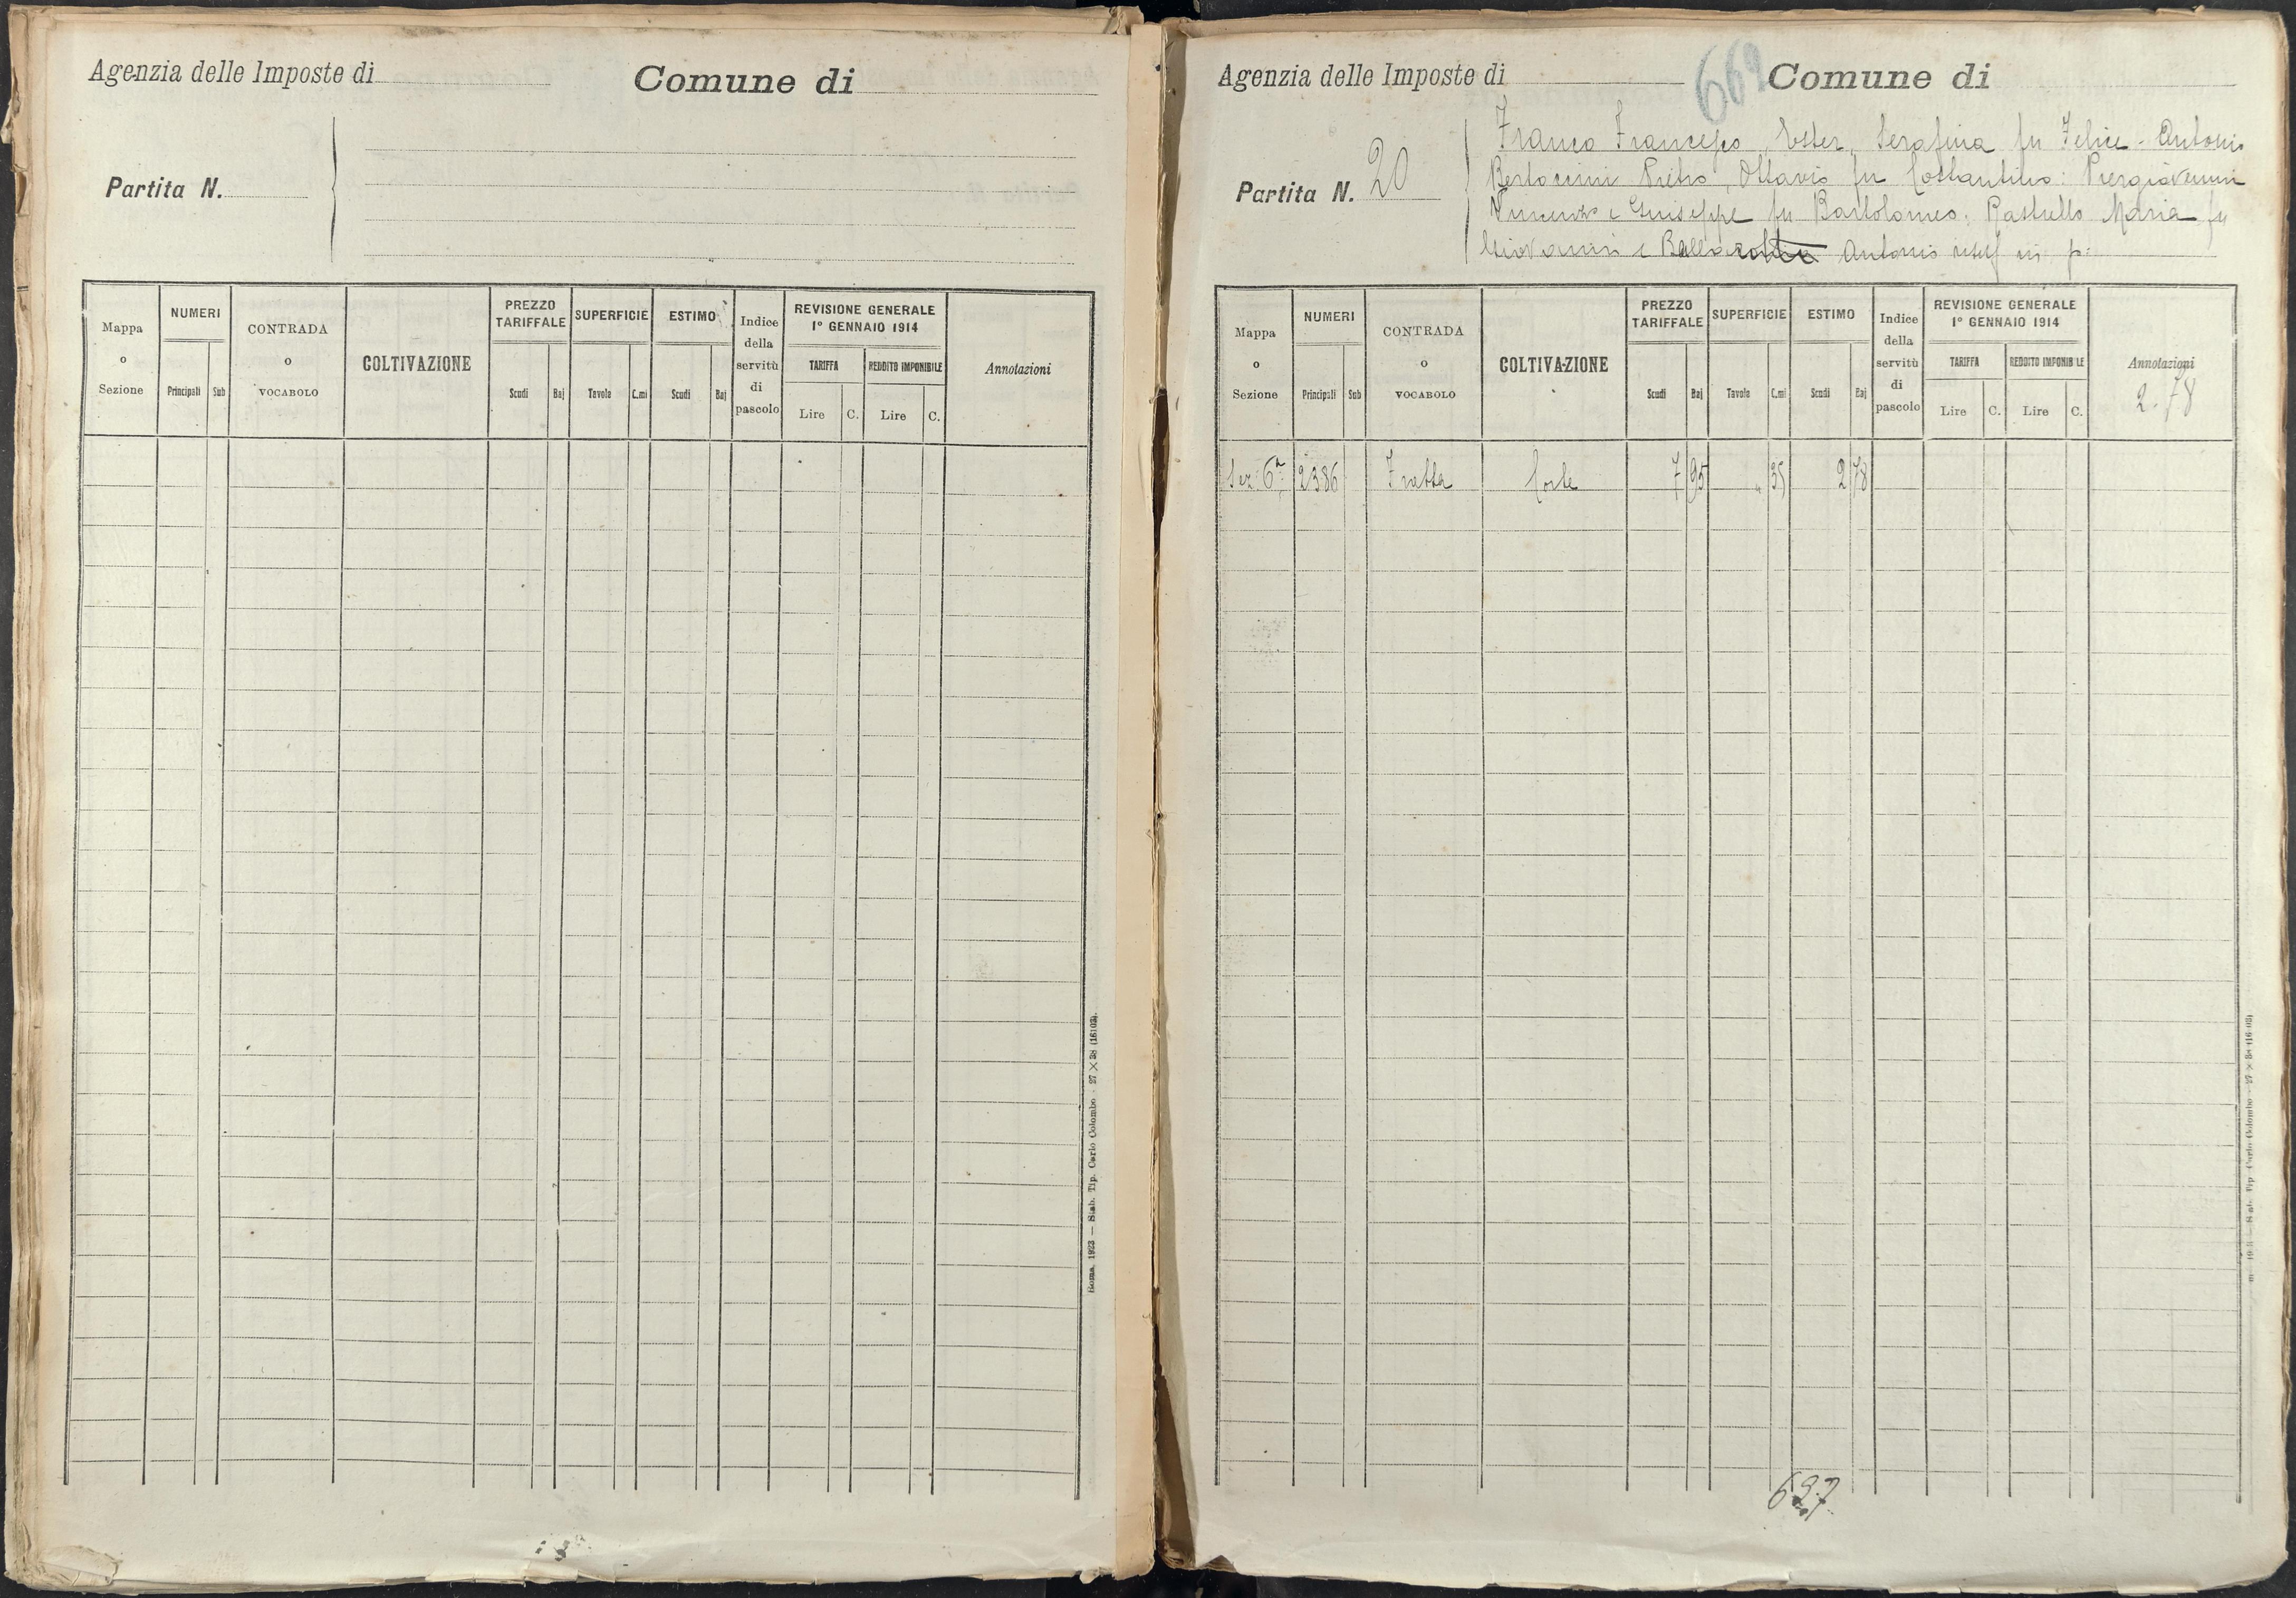 Agenzia delle Imposte di
Comune di
Partita N.
Mappa o Sezione
NUMERI
Principali
Sub
CONTRADA o VOCABOLO
COLTIVAZIONE
PREZZO TARIFFALE
Scudi
Baj
SUPERFICIE
Tavole
C.mi
ESTIMO
Scudi
Baj
Indice della servitù di pascolo
REVISIONE GENERALE
1° GENNAIO 1914
TARIFFA
REDDITO IMPONIBILE
Lire
C.
Lire
C.
Annotazioni
Roma, 1923 — Stab. Tip. Carlo Colombo - 27 × 38 (16103).
Agenzia delle Imposte di
669
Comune di
Partita N. 20
Franco Francesco, Ester, Serafina fu Felice - Antonio
Bertoccini Pietro, Ottavio fu Costantino: Piergiovanni
Vincenzo e Giuseppe fu Bartolomeo, Rastrello Maria fu
Giovanni e Antonio
Mappa o Sezione
NUMERI
Principali
Sub
CONTRADA o VOCABOLO
COLTIVAZIONE
PREZZO TARIFFALE
Scudi
Baj
SUPERFICIE
Tavole
C.mi
ESTIMO
Scudi
Baj
Indice della servitù di pascolo
REVISIONE GENERALE
1° GENNAIO 1914
TARIFFA
REDDITO IMPONIBILE
Lire
C.
Lire
C.
Annotazioni
2.78
Sez: 6ª 2386 Fratta Corte 7 95 " 35 2 78
Stab. Tip. Carlo Colombo - 27 × 38 (16103)
637